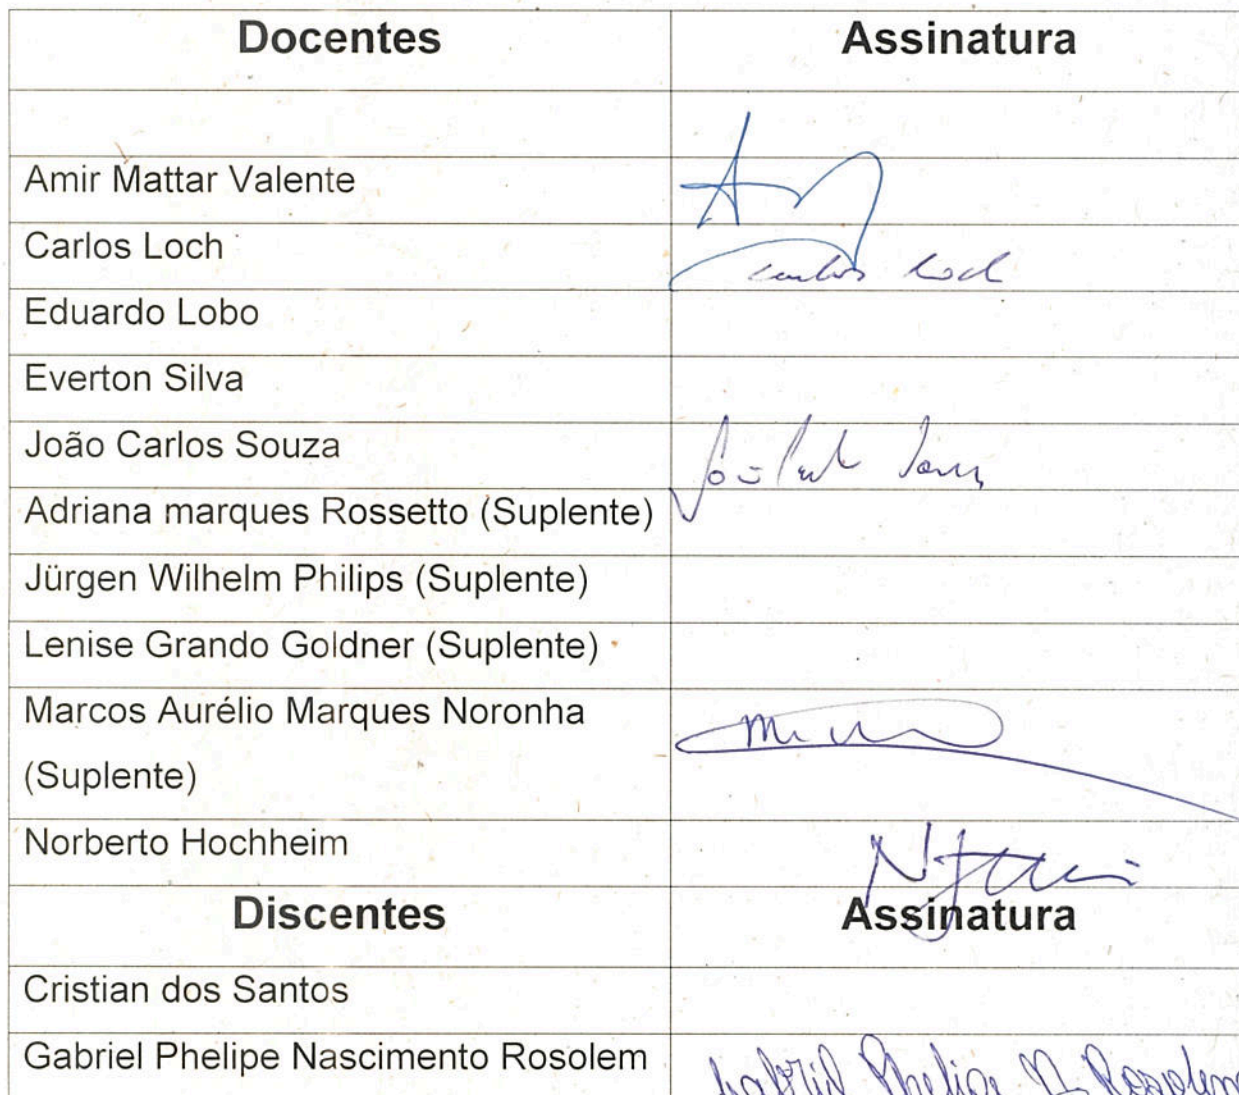 Docentes Assinatura
Amir Mattar Valente
Carlos Loch Carlos Loch
Eduardo Lobo
Everton Silva
João Carlos Souza
Adriana marques Rossetto (Suplente)
Jürgen Wilhelm Philips (Suplente)
Lenise Grando Goldner (Suplente)
Marcos Aurélio Marques Noronha
(Suplente)
Norberto Hochheim
Discentes Assinatura
Cristian dos Santos
Gabriel Phelipe Nascimento Rosolem Gabriel Phelipe N. Rosolem